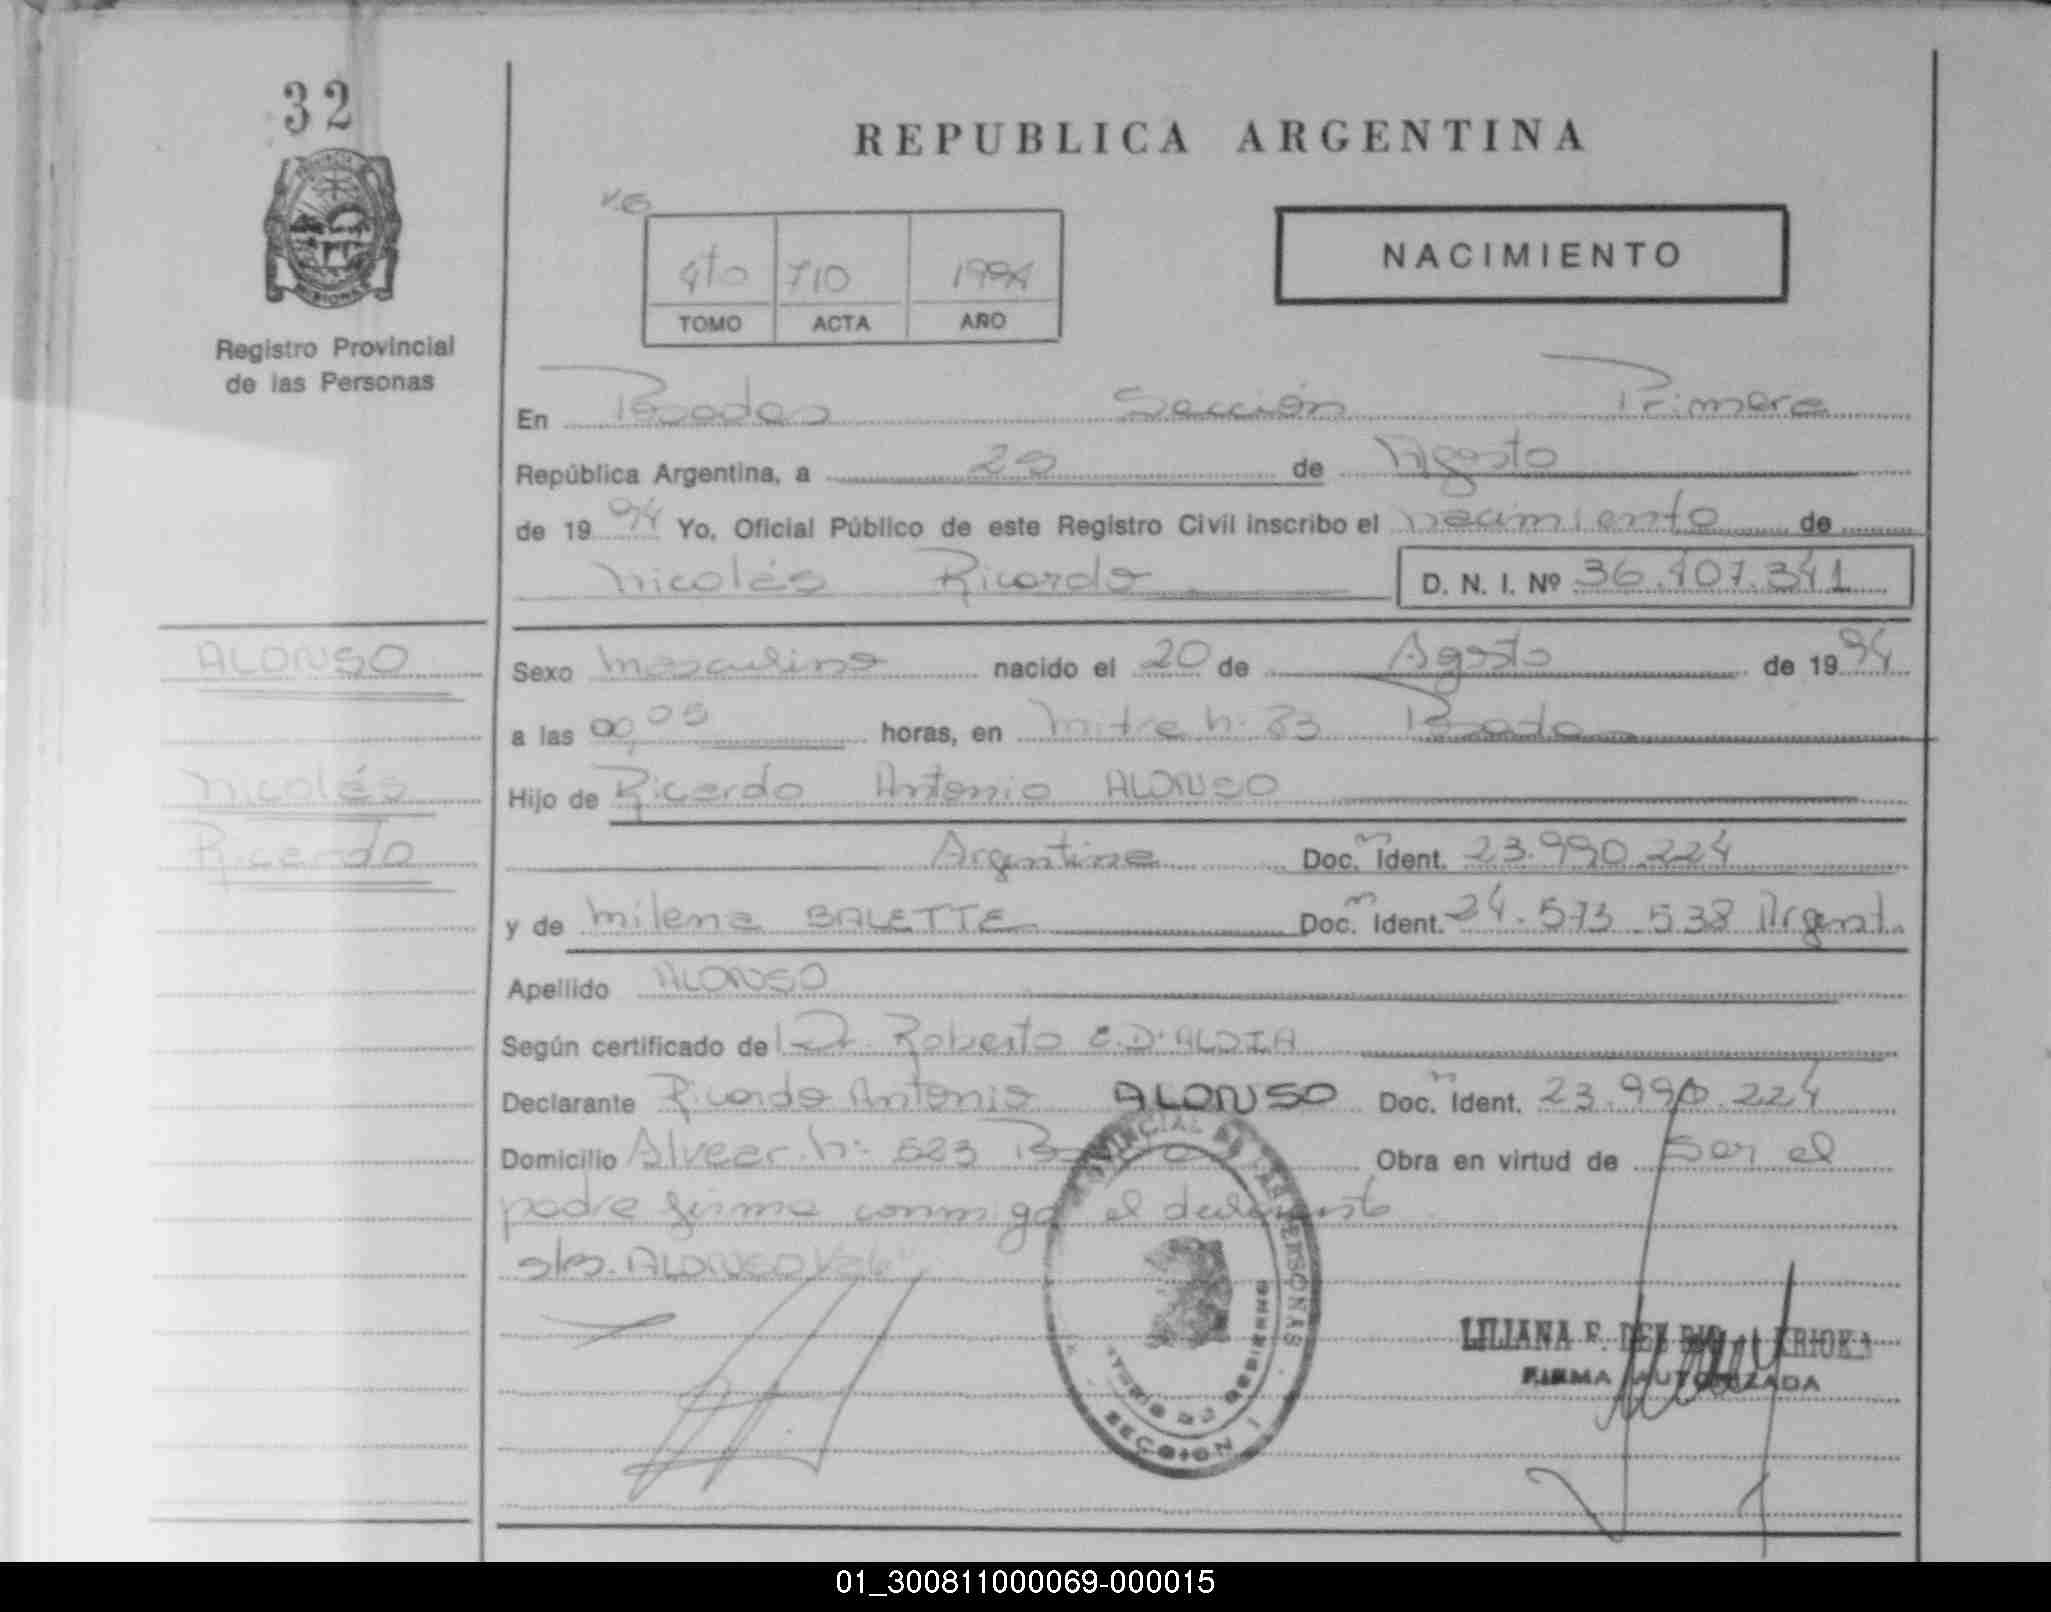 32
REPUBLICA ARGENTINA
V.G.
4to 710 1994
TOMO ACTA AÑO
NACIMIENTO
MISIONES
Registro Provincial
de las Personas
En Posadas Sección Primera
República Argentina, a de Agosto
de 1994 Yo, Oficial Público de este Registro Civil inscribo el nacimiento de
Nicolás Ricardo D. N. I. Nº 36.407.341
ALONSO
Sexo Masculino nacido el 20 de Agosto de 1994
a las 00,05 horas, en Mitre Nº 83 Posadas
Nicolás
Hijo de Ricardo Antonio ALONSO
Ricardo
Argentina Doc. Ident. 23.990.224
y de Milena BALETTE Doc. Ident. 24.573.538 Argent.
Apellido ALONSO
Según certificado de Dr. Roberto E. D'ALDIA
Declarante Ricardo Antonio ALONSO Doc. Ident. 23.990.224
Domicilio Alvear Nº 523 Posadas Obra en virtud de Ser el
padre firma conmigo el declarante
s/r. ALONSO Vale
PROVINCIAL DE LAS PERSONAS
SECCION 1
LILIANA F. DEL
FIRMA AUTORIZADA
01_300811000069-000015